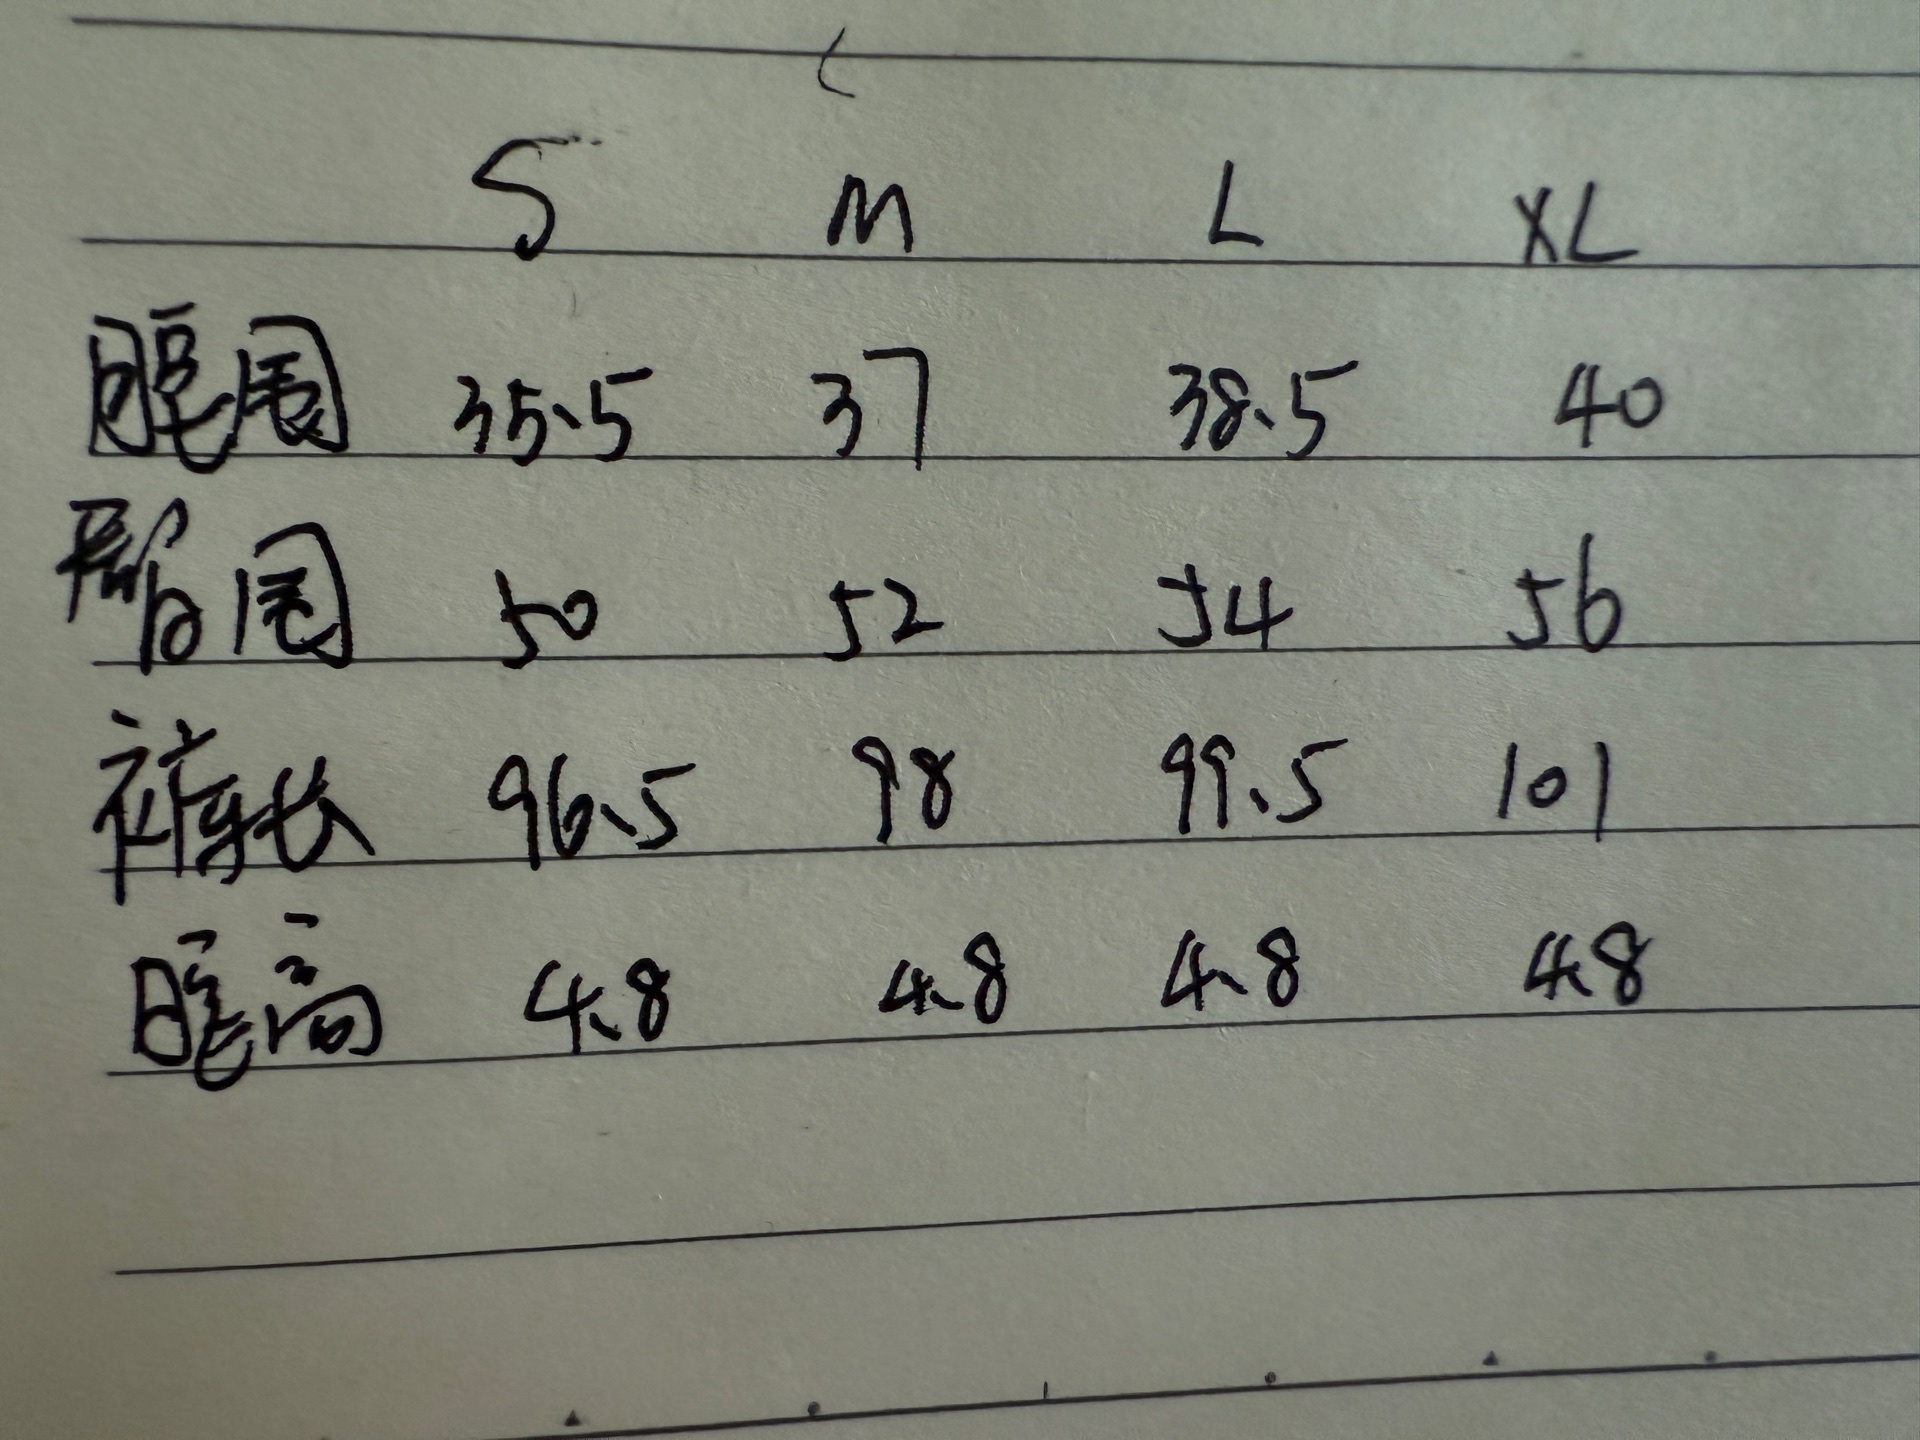 S M L XL
腰围 35.5 37 38.5 40
臀围 50 52 54 56
裤长 96.5 98 99.5 101
腰高 4.8 4.8 4.8 4.8